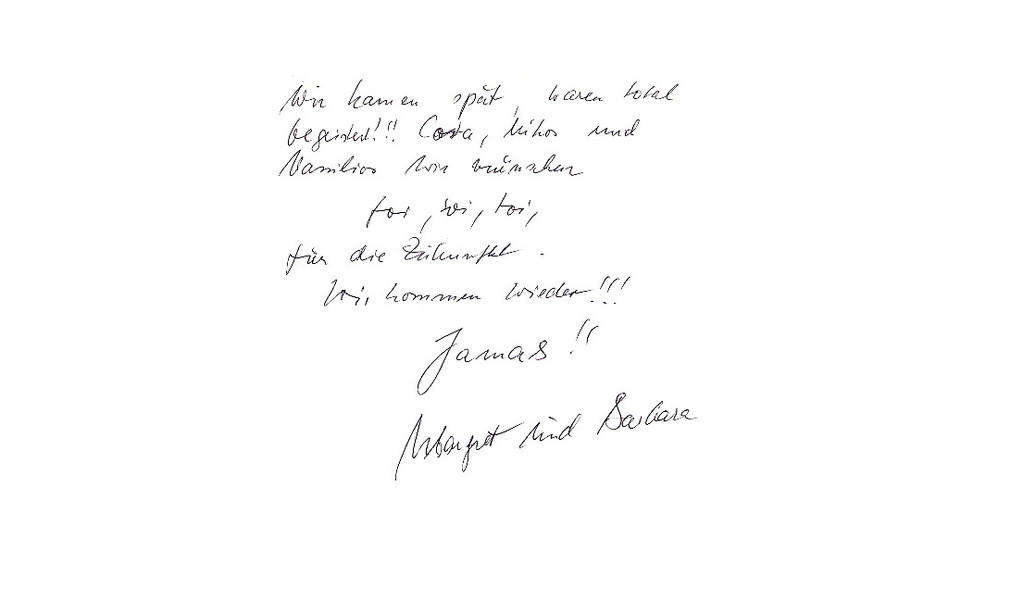 Wir kamen spät, waren total
begeistert!!! Costa, Nikos und
Vassilios wir wünschen
toi, toi, toi,
für die Zukunft.
Wir kommen wieder!!!
Jamas!!
Margret und Barbara